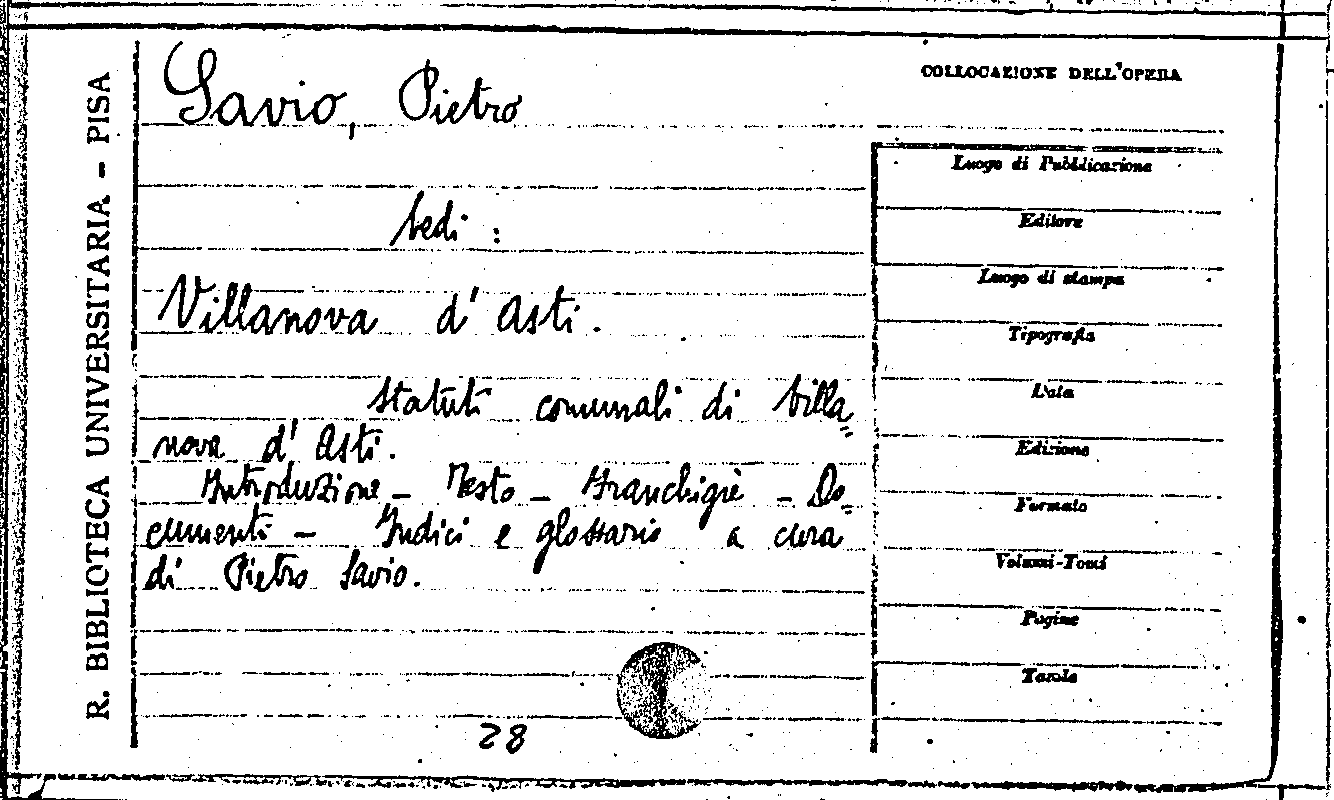 R. BIBLIOTECA UNIVERSITARIA - PISA
Savio, Pietro
Vedi :
Villanova d' Asti.
Statuti comunali di Villa=
nova d' Asti.
Introduzione - Testo - Franchigie - Do=
cumenti - Indici e glossario a cura
di Pietro Savio.
28
COLLOCAZIONE DELL'OPERA
Luogo di Pubblicazione
Editore
Luogo di stampa
Tipografia
Data
Edizione
Formato
Volumi-Tomi
Pagine
Tavole